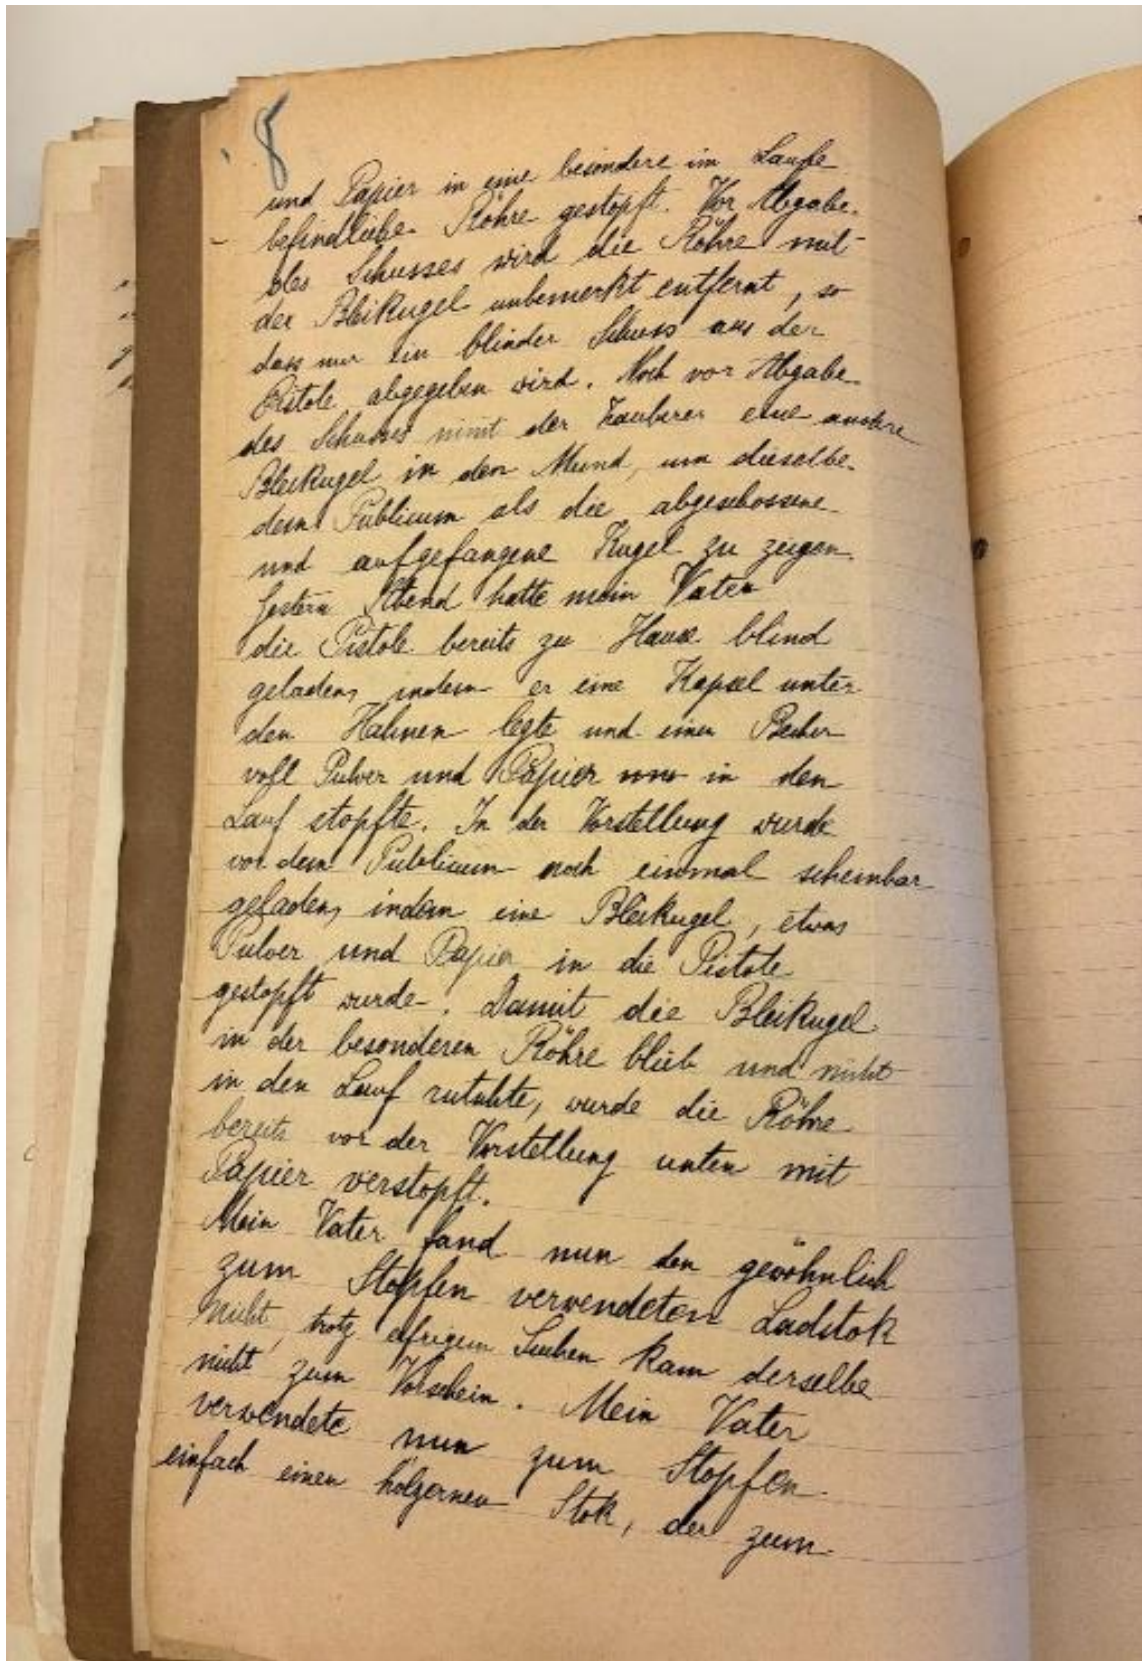 8
und Papier in eine besondere im Laufe
befindliche Röhre gestopft. Vor Abgabe
des Schusses wird die Röhre mit
der Bleikugel unbemerkt entfernt, so
dass nur ein blinder Schuss aus der
Pistole abgegeben wird. Noch vor Abgabe
des Schusses nimt der Zauberer eine andere
Bleikugel in den Mund, um dieselbe
dem Publicum als die abgeschossene
und aufgefangene Kugel zu zeigen.
Gestern Abend hatte mein Vater
die Pistole bereits zu Hause blind
geladen, indem er eine Kapsel unter
den Hahnen legte und einen Becher
voll Pulver und Papier in den
Lauf stopfte. In der Vorstellung wurde
vor dem Publicum noch einmal scheinbar
geladen, indem eine Bleikugel, etwas
Pulver und Papier in die Pistole
gestopft wurde. Damit die Bleikugel
in der besonderen Röhre blieb und nicht
in den Lauf rutschte, wurde die Röhre
bereits vor der Vorstellung unten mit
Papier verstopft.
Mein Vater fand nun den gewöhnlich
zum Stopfen verwendeten Ladstok
nicht, trotz eifrigem Suchen kam derselbe
nicht zum Vorschein. Mein Vater
verwendete nun zum Stopfen
einfach einen hölzernen Stok, der zum